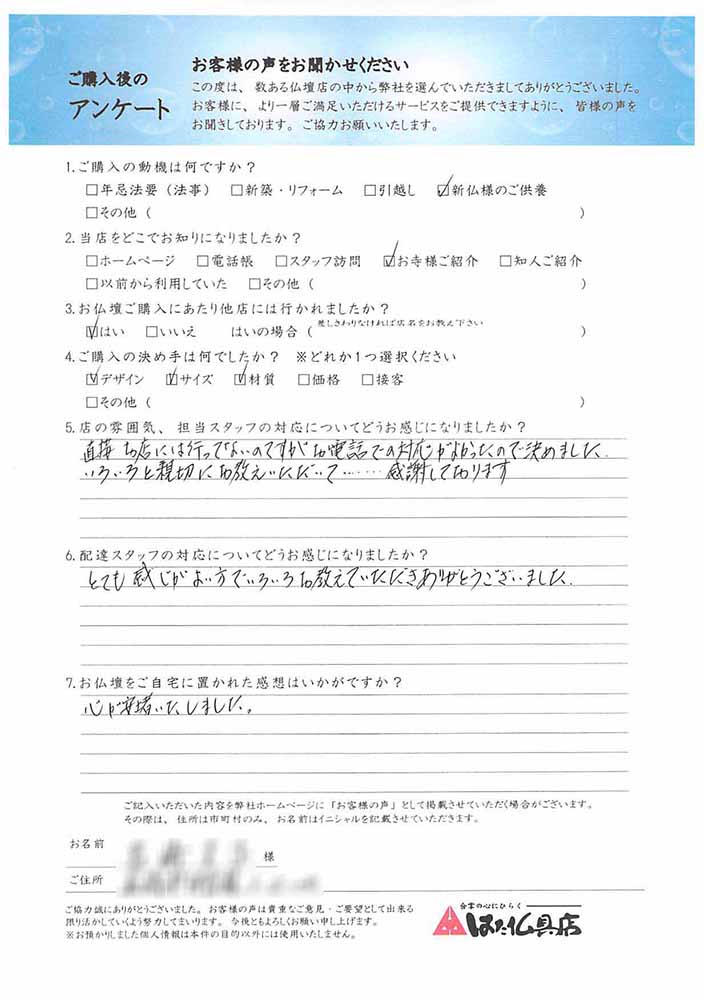 ご購入後の
アンケート
お客様の声をお聞かせください
この度は、数ある仏壇店の中から弊社を選んでいただきましてありがとうございました。
お客様に、より一層ご満足いただけるサービスをご提供できますように、皆様の声を
お聞きしております。ご協力お願いいたします。
1.ご購入の動機は何ですか？
□年忌法要（法事） □新築・リフォーム □引越し ☑新仏様のご供養
□その他（ ）
2.当店をどこでお知りになりましたか？
□ホームページ □電話帳 □スタッフ訪問 ☑お寺様ご紹介 □知人ご紹介
□以前から利用していた □その他（ ）
3.お仏壇ご購入にあたり他店には行かれましたか？
☑はい □いいえ はいの場合（差しさわりなければ店名をお教え下さい ）
4.ご購入の決め手は何でしたか？ ※どれか1つ選択ください
☑デザイン ☑サイズ ☑材質 □価格 □接客
□その他（ ）
5.店の雰囲気、担当スタッフの対応についてどうお感じになりましたか？
直接お店には行ってないのですがお電話での対応がよかったので決めました.
いろいろと親切にお教えいただいて……感謝しております
6.配達スタッフの対応についてどうお感じになりましたか？
とても感じがよい方でいろいろお教えていただきありがとうございました.
7.お仏壇をご自宅に置かれた感想はいかがですか？
心が安堵いたしました。
ご記入いただいた内容を弊社ホームページに「お客様の声」として掲載させていただく場合がございます。
その際は、住所は市町村のみ、お名前はイニシャルを記載させていただきます。
お名前 様
ご住所
ご協力誠にありがとうございました。お客様の声は貴重なご意見・ご要望として出来る
限り活かしていくよう努力してまいります。今後ともよろしくお願い申し上げます。
※お預かりしました個人情報は本件の目的以外には使用いたしません。
合掌の心にひらく
はた仏具店